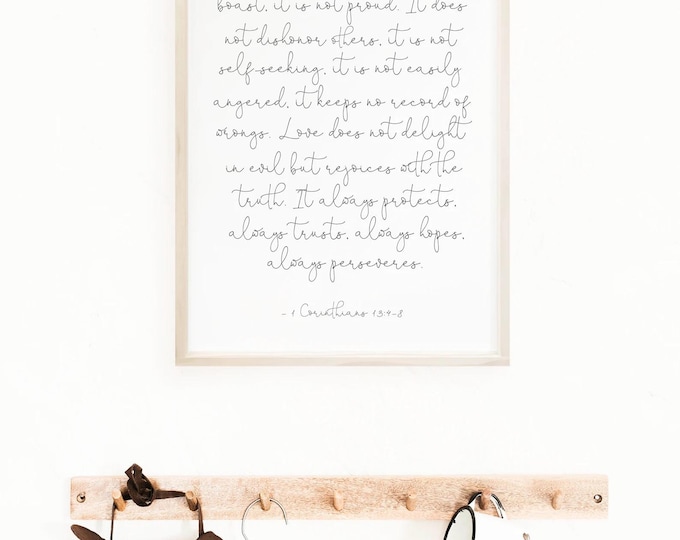 boast, it is not proud. It does
not dishonor others, it is not
self-seeking, it is not easily
angered, it keeps no record of
wrongs. Love does not delight
in evil but rejoices with the
truth. It always protects,
always trusts, always hopes,
always perseveres.
- 1 Corinthians 13:4-8